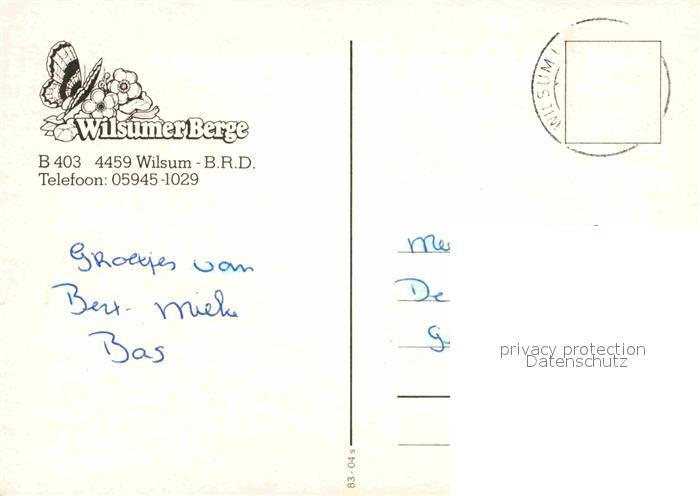 Wilsumer Berge
B 403 4459 Wilsum - B.R.D.
Telefoon: 05945-1029
Groetjes van
Bert - Mieke
Bas
83-04 s
WILSUM 1
privacy protection
Datenschutz